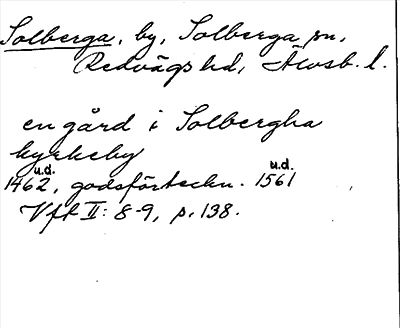 Solberga, by, Solberga sn,
Redvägs hd, Älvsb. l.
en gård i Solbergha
kyrkeby
u.d. u.d.
1462, godsförteckn. 1561
Vft II: 8-9, p. 138.